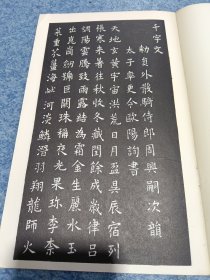 千字文
勅員外散騎侍郎周興嗣次韻
太子率更令歐陽詢書
天地玄黃宇宙洪荒日月盈昃辰宿列
張寒來暑往秋收冬藏閏餘成歲律呂
調陽雲騰致雨露結為霜金生麗水玉
出崑崗劒號巨闕珠稱夜光果珎李柰
菜重芥薑海鹹河淡鱗潛羽翔龍師火